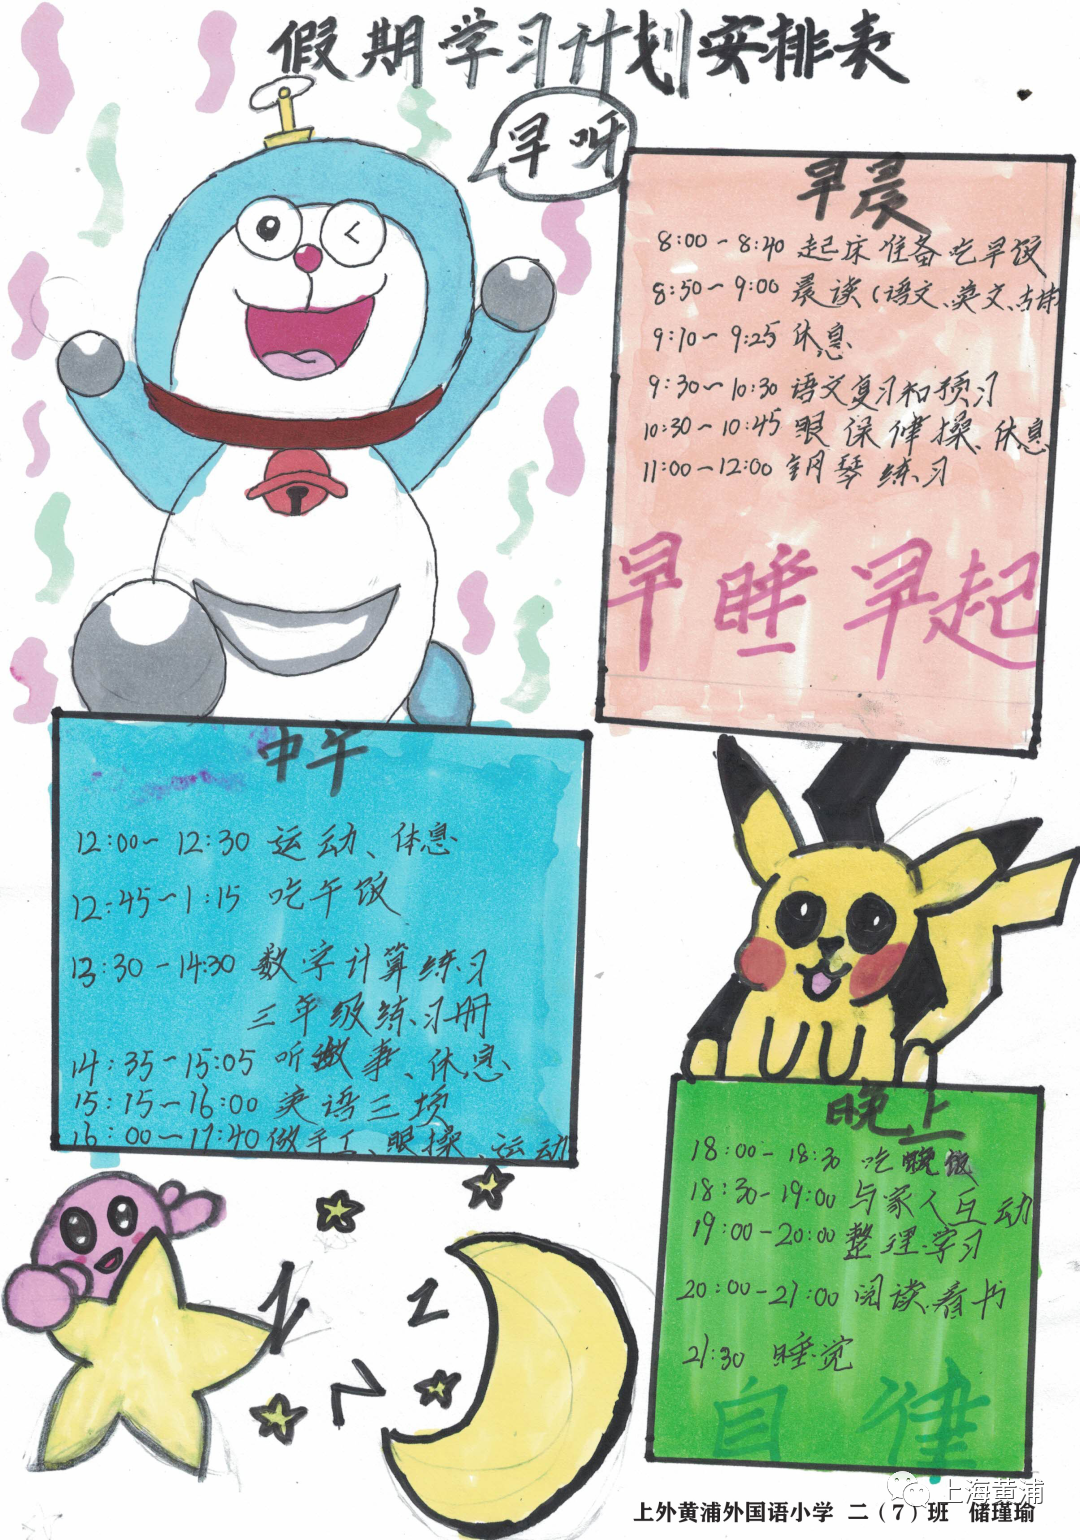 假期学习计划安排表
早呀
早晨
8:00-8:40 起床 准备吃早饭
8:50-9:00 晨读(语文、英文、古诗
9:10-9:25 休息
9:30-10:30 语文复习和预习
10:30-10:45 眼保健操、休息
11:00-12:00 钢琴练习
早睡早起
中午
12:00-12:30 运动、休息
12:45-1:15 吃午饭
13:30-14:30 数字计算练习
三年级练习册
14:35-15:05 听故事、休息
15:15-16:00 英语三项
16:00-17:40 做手工、眼操、运动
晚上
18:00-18:30 吃晚饭
18:30-19:00 与家人互动
19:00-20:00 整理学习
20:00-21:00 阅读、看书
21:30 睡觉
自律
Z
Z
Z
上海黄浦
上外黄浦外国语小学 二(7)班 储瑾瑜